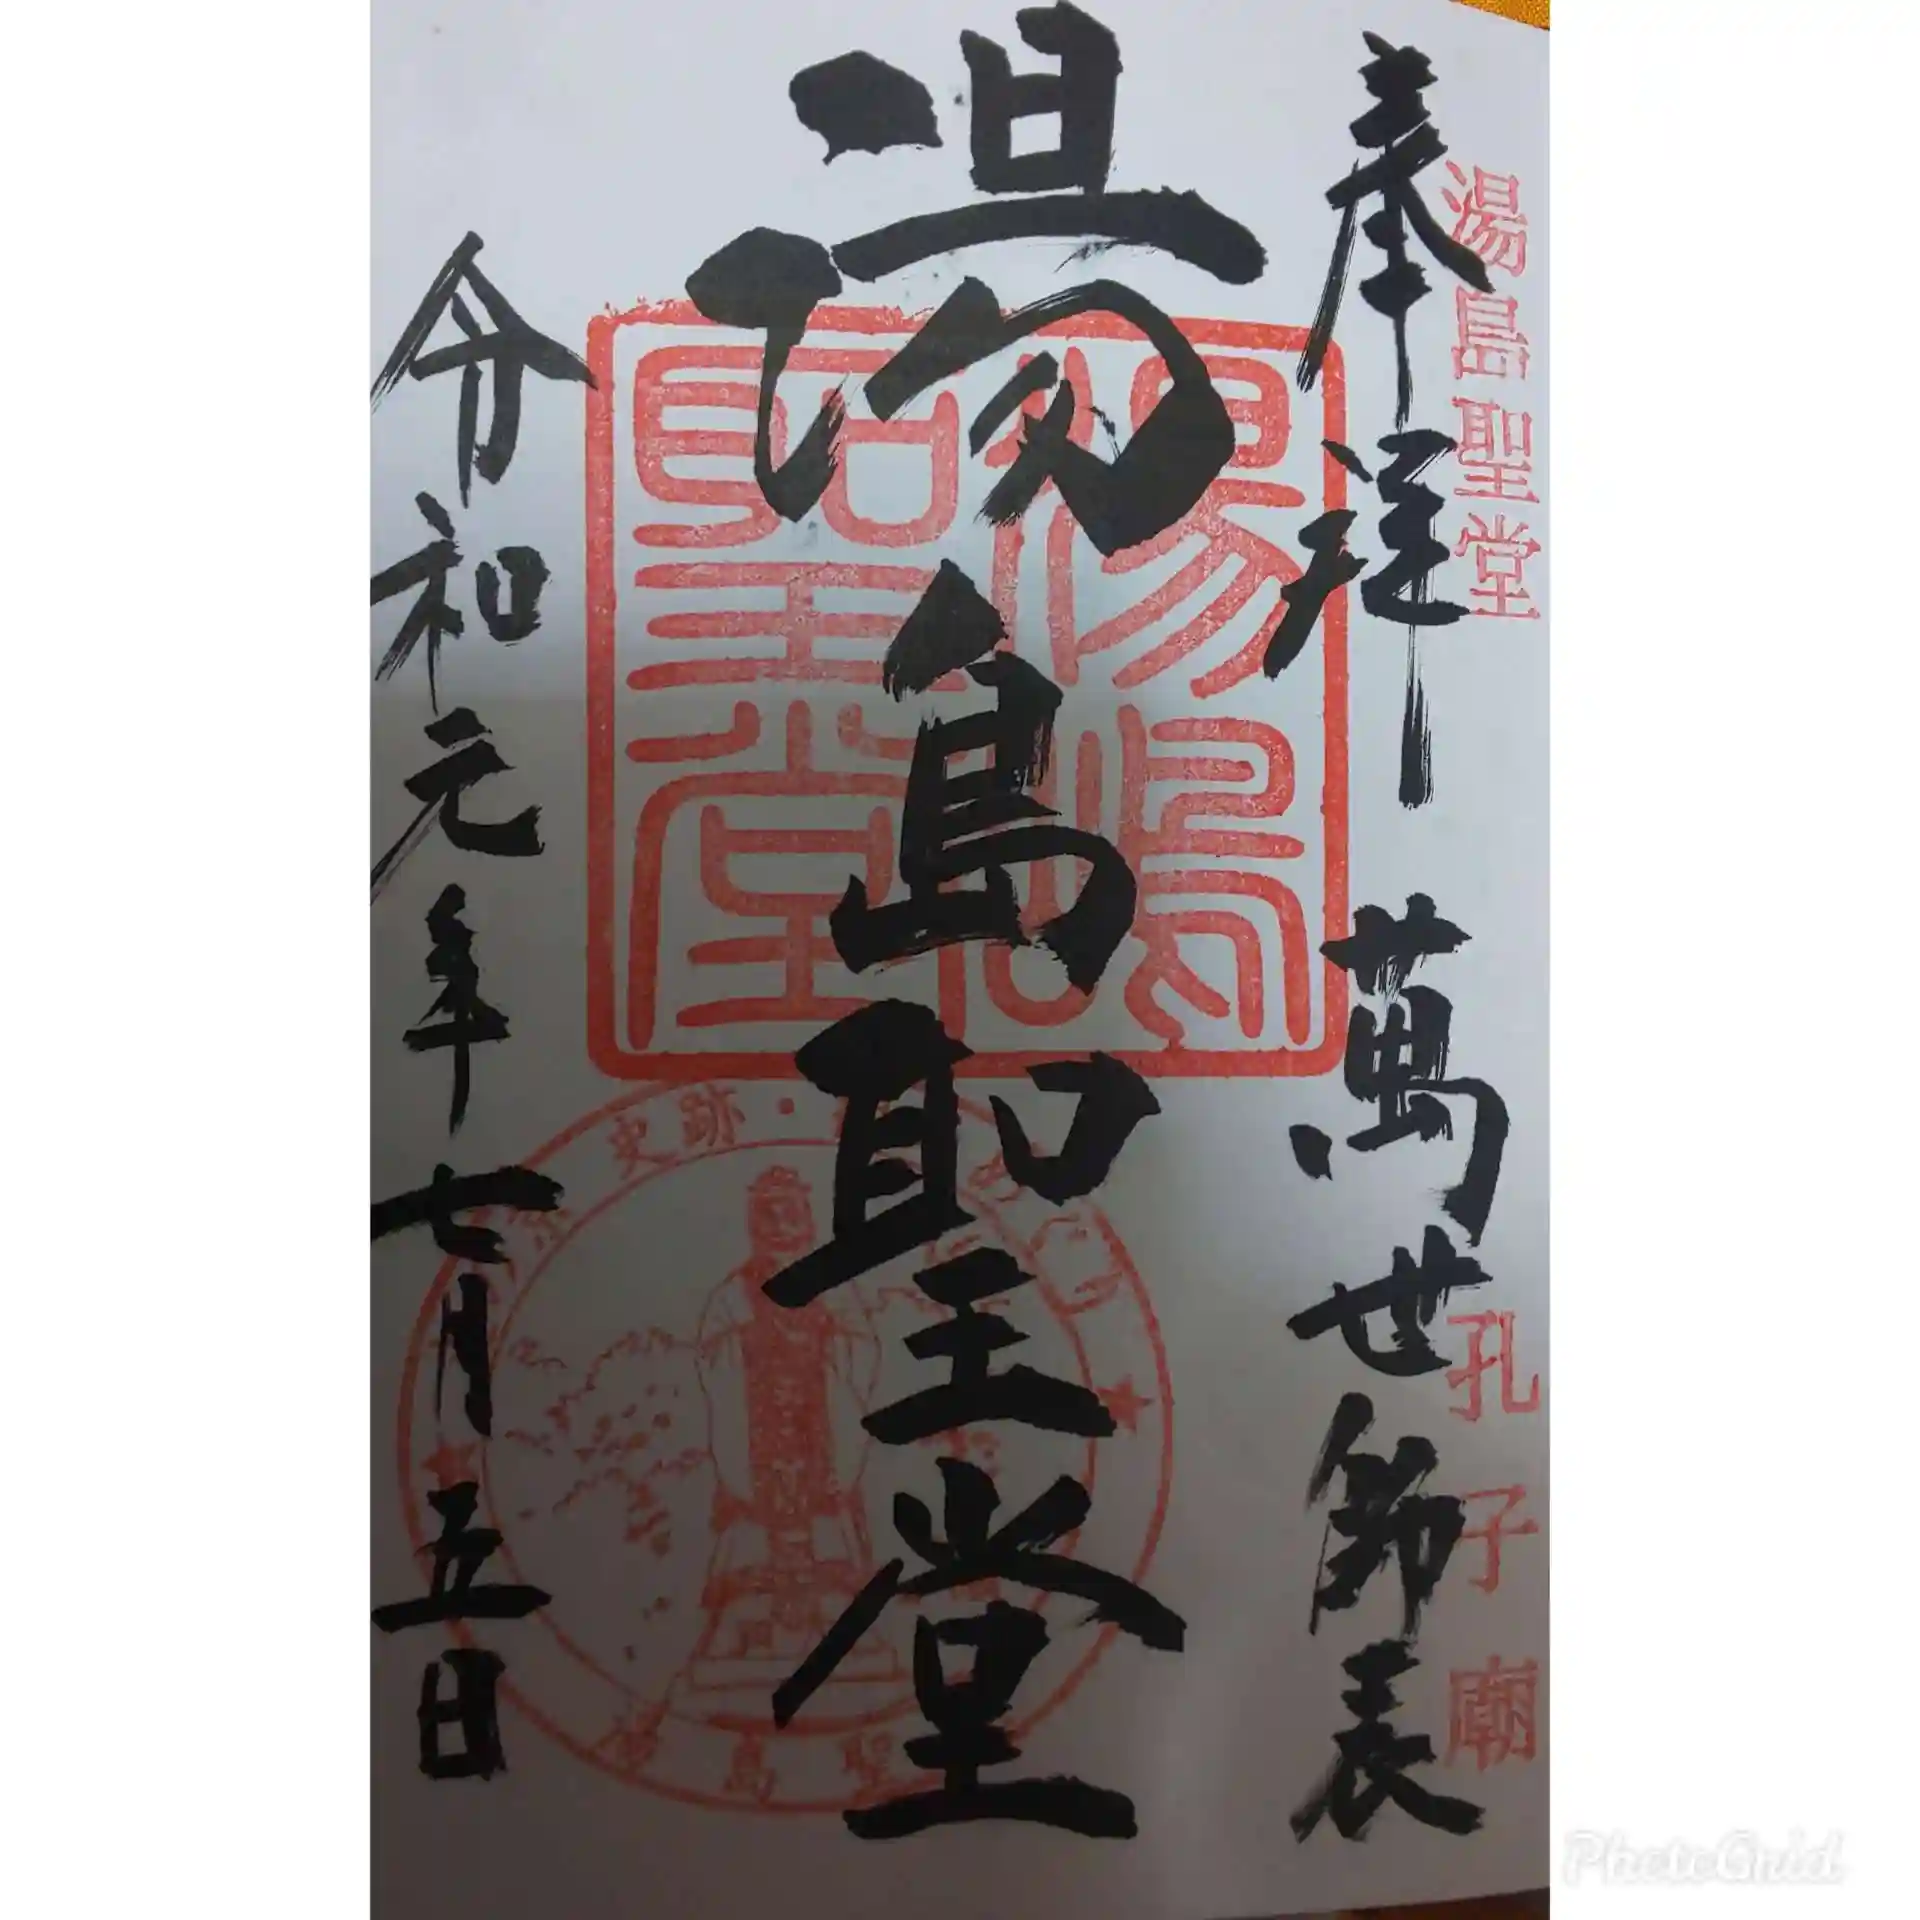 湯島聖堂
孔子廟
奉拝 萬世師表
湯島聖堂
湯島聖堂
令和元年七月五日
史跡・
湯島聖
PhotoGrid